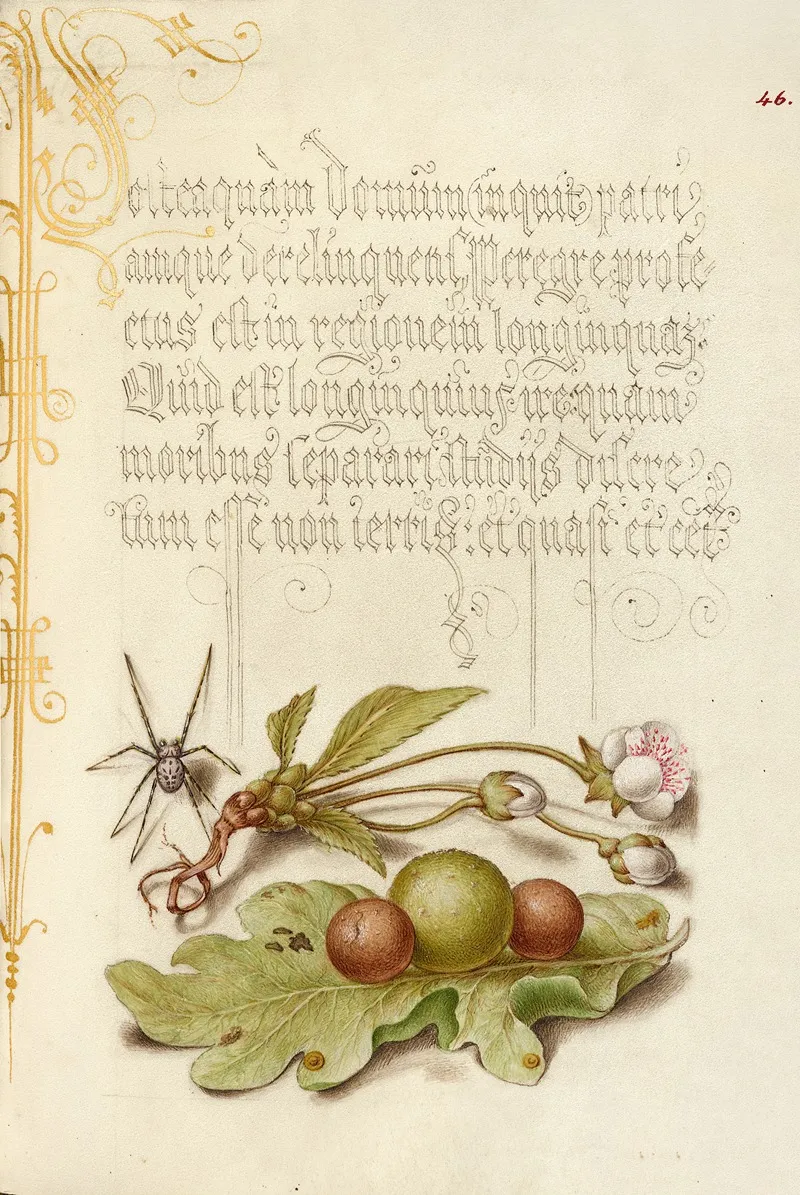 46.
Post ea quàm Dominũ (inquit) patri
amque derelinquens, Peregre profe-
ctus est in regionem longinquaz:
Quid est longinquius ire quam
moribus separari, studijs discre
tum esse non terris: et quasi et cet